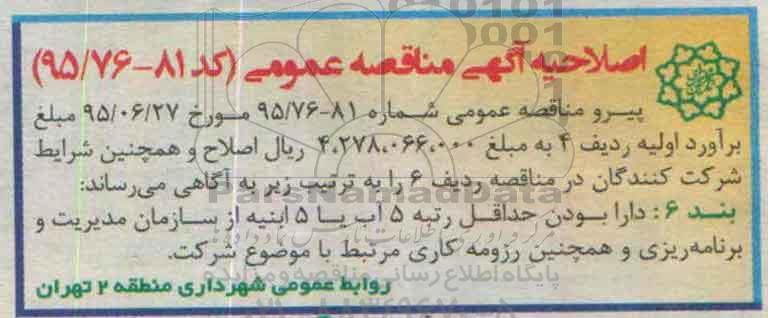 اصلاحیه آگهی مناقصه عمومی (کد ۸۱-۹۵/۷۶)
پیرو مناقصه عمومی شماره ۸۱-۹۵/۷۶ مورخ ۹۵/۰۶/۲۷ مبلغ
برآورد اولیه ردیف ۴ به مبلغ ۴،۲۷۸،۰۶۶،۰۰۰ ریال اصلاح و همچنین شرایط
شرکت کنندگان در مناقصه ردیف ۶ را به ترتیب زیر به آگاهی می‌رساند:
ParsNamadData
بند ۶: دارا بودن حداقل رتبه ۵ آب یا ۵ ابنیه از سازمان مدیریت و
برنامه‌ریزی و همچنین رزومه کاری مرتبط با موضوع شرکت.
پایگاه اطلاع رسانی مناقصه و مزایده
روابط عمومی شهرداری منطقه ۲ تهران